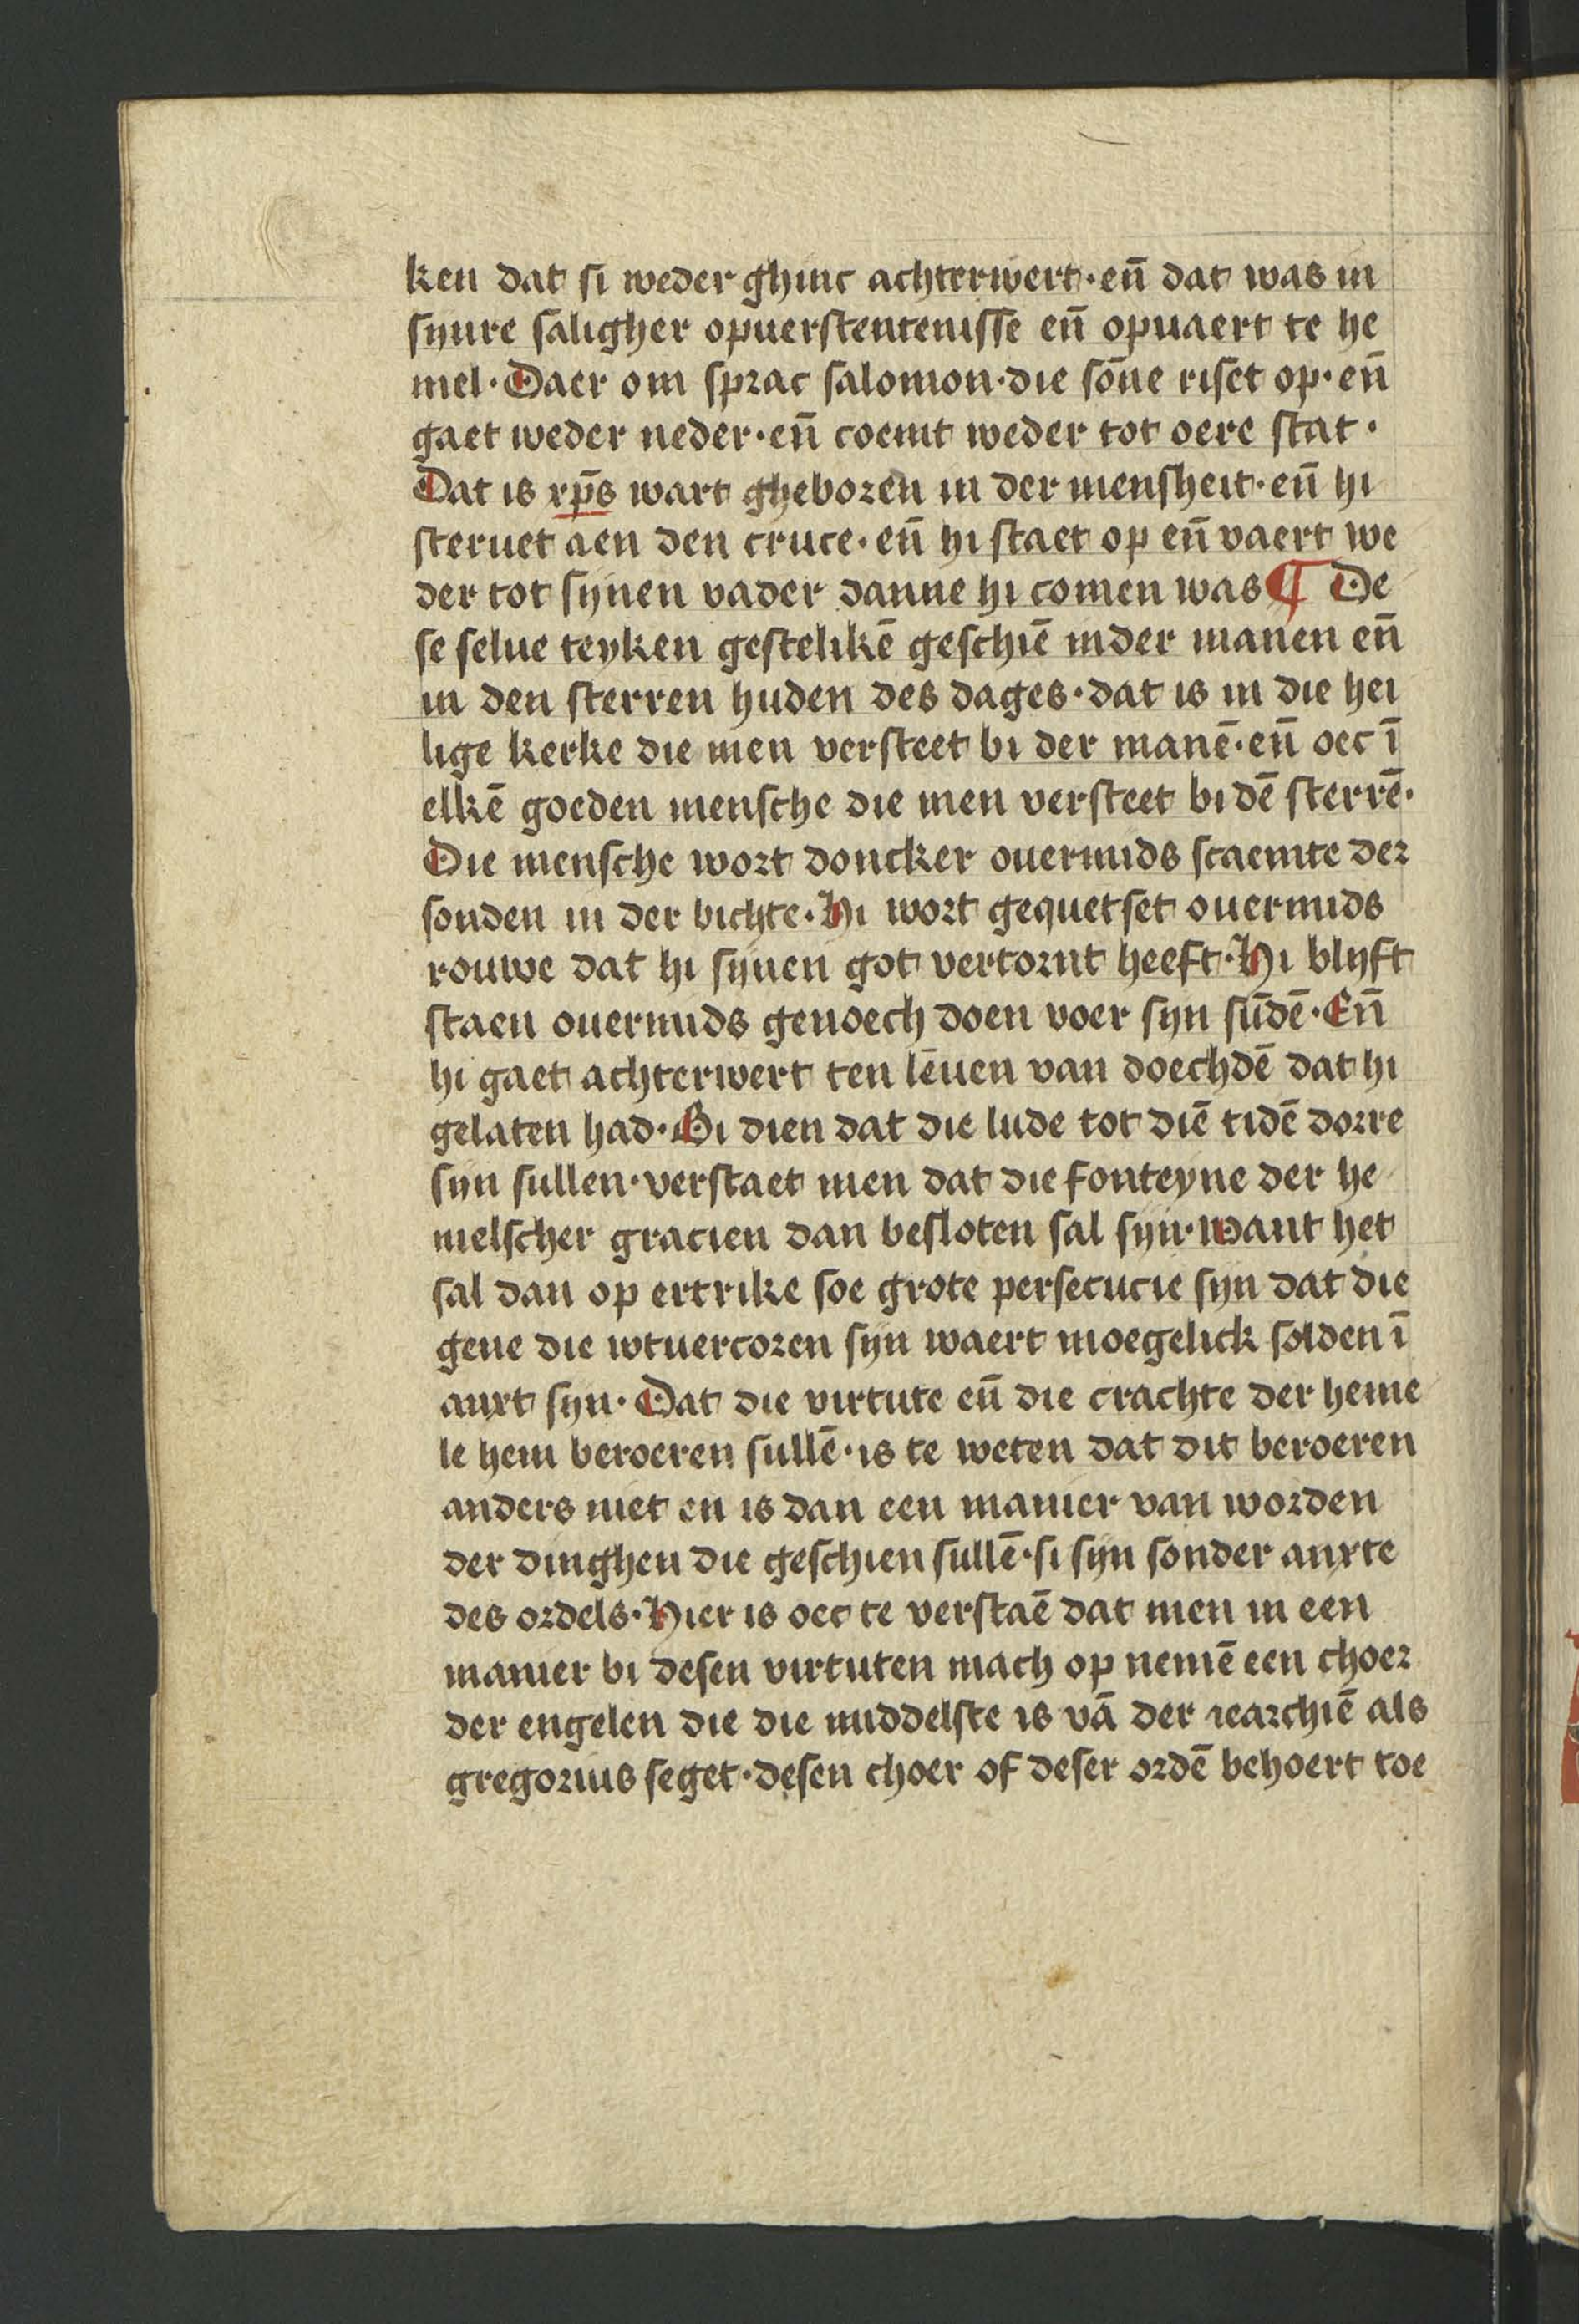 ken dat si weder ghinc achterwert · en̄ dat was in
synre saligher opuerstentenisse en̄ opuaert te he
mel · Daer om sprac salomon · die sōne riset op · en̄
gaet weder neder · en̄ coemt weder tot oere stat ·
Dat is xp̄s wart gheboren in der mensheit · en̄ hi
steruet aen den cruce · en̄ hi staet op en̄ vaert we
der tot synen vader danne hi comen was ¶ De
se selue teyken gestelikē geschiē inder manen en̄
in den sterren huden des dages · dat is in die hei
lige kerke die men versteet bi der manē · en̄ oec ī
elkē goeden mensche die men versteet bi dē sterrē ·
Die mensche wort doncker ouermids scaemte der
sonden in der bichte · Hi wort gequetset ouermids
rouwe dat hi synen got vertornt heeft · Hi blyft
staen ouermids genoech doen voer syn sūdē · En̄
hi gaet achterwert ten lēuen van doechdē dat hi
gelaten had · Bi dien dat die lude tot diē tidē dorre
syn sullen · verstaet men dat die fonteyne der he
melscher gracien dan besloten sal syn · want het
sal dan op ertrike soe grote persecucie syn dat die
gene die wtuercoren syn waert moegelick solden ī
anxt syn · Dat die virtute en̄ die crachte der heme
le hem beroeren sullē · is te weten dat dit beroeren
anders niet en is dan een manier van worden
der dinghen die geschien sullē · si syn sonder anxte
des ordels · Hier is oec te verstaē dat men in een
manier bi desen virtuten mach op nemē een choer
der engelen die die middelste is vā der iearchiē als
gregorius seget · desen choer of deser ordē behoert toe